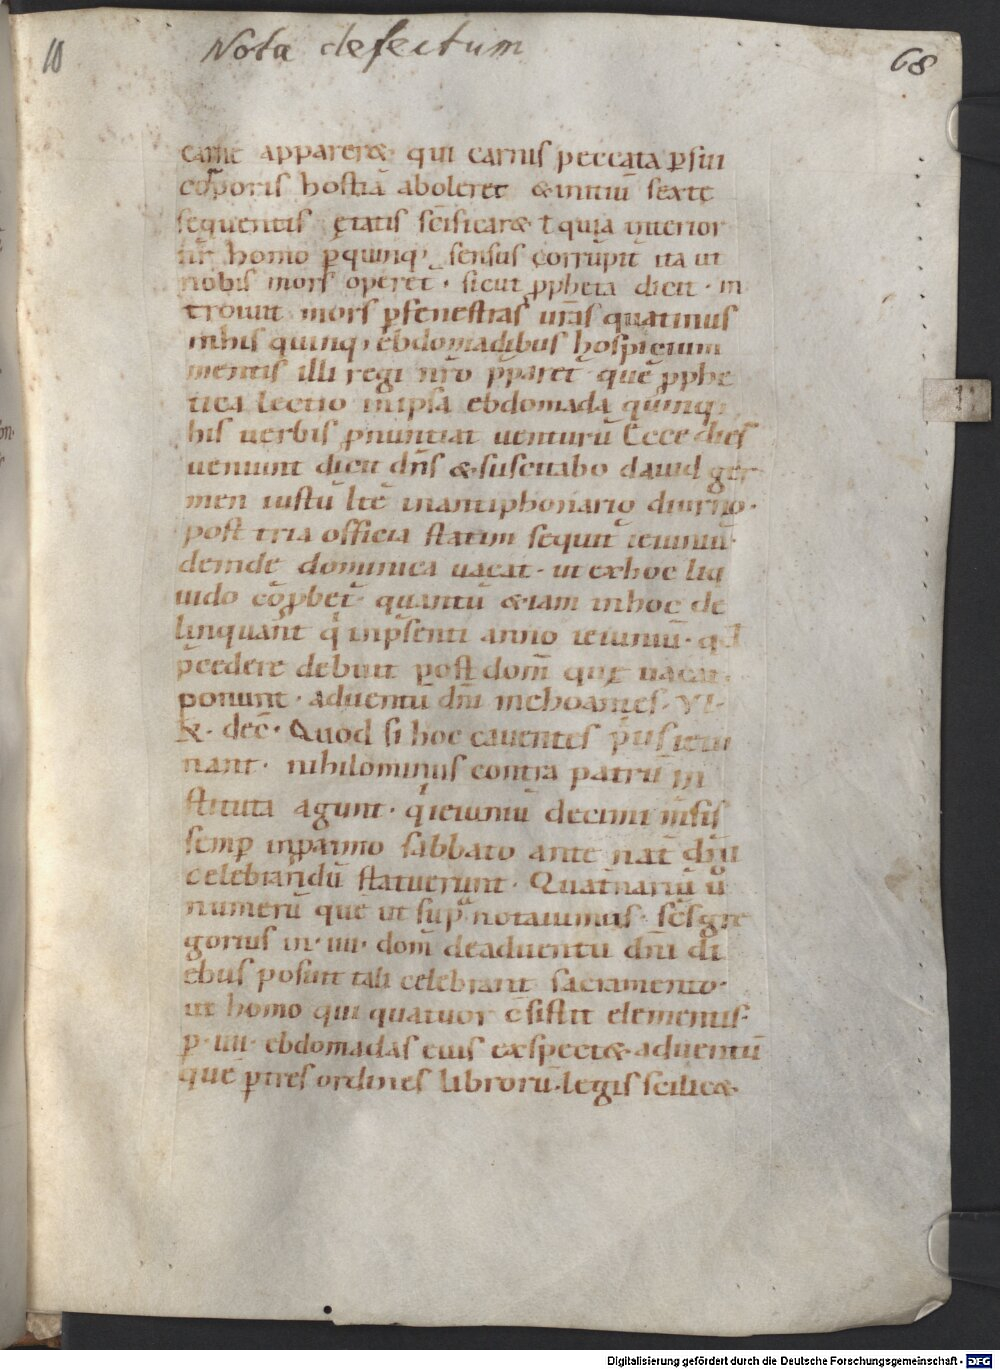 10 Nota defectum 68
carne apparer& qui carnis peccata ꝑsui
corporis hostiā aboleret & initiū sextę
sequentis ętatis sc̄ificar& ł quia interior
homo ꝑquinq; sensus corrupit ita ut
nobis mors operet · sicut ꝓpheta dicit · in
troiuit mors ꝑfenestras ur̄as quatinus
inhis quinq; ebdomadibus hospicium
mentis illi regi nr̄o p̄paret que ꝓphe
tica lectio inipsa ebdomada quinq;
his uerbis p̄nuntiat uenturū Ecce dies
ueniunt dicit dn̄s & suscitabo dauid ger
men iustū Itē inantiphonario diurno ·
post tria officia statim sequit ieiuniū ·
deinde dominica uacat · ut exhoc liq
uido cōꝓbet · quantū & iam inhoc de
linquant qi inp̄senti anno ieiuniū · qd
p̄cedere debuit post dom̄ quę uacat
ponunt · aduentū dn̄i inchoantes · VI ·
K · dec̄ · Quod si hoc cauentes p̄us ieiu
nant · nihilominus contra patrū in
stituta agunt · qi ieiuniū decimi m̄sis
semꝑ inproximo sabbato ante nat̄ dn̄i
celebrandū statuerunt · Quat̄nariū ū
numerū que ut sup̄ notauimus · sc̄s gre
gorius in · iiii · dom̄ deaduentu dn̄i di
ebus posuit tali celebrant sacramento ·
ut homo qui quatuor c̄sistit elementis ·
ꝑ · iiii · ebdomadas eius exspect& aduentū
que ꝑtres ordines librorū · legis scilic& ·
11
Digitalisierung gefördert durch die Deutsche Forschungsgemeinschaft - DFG